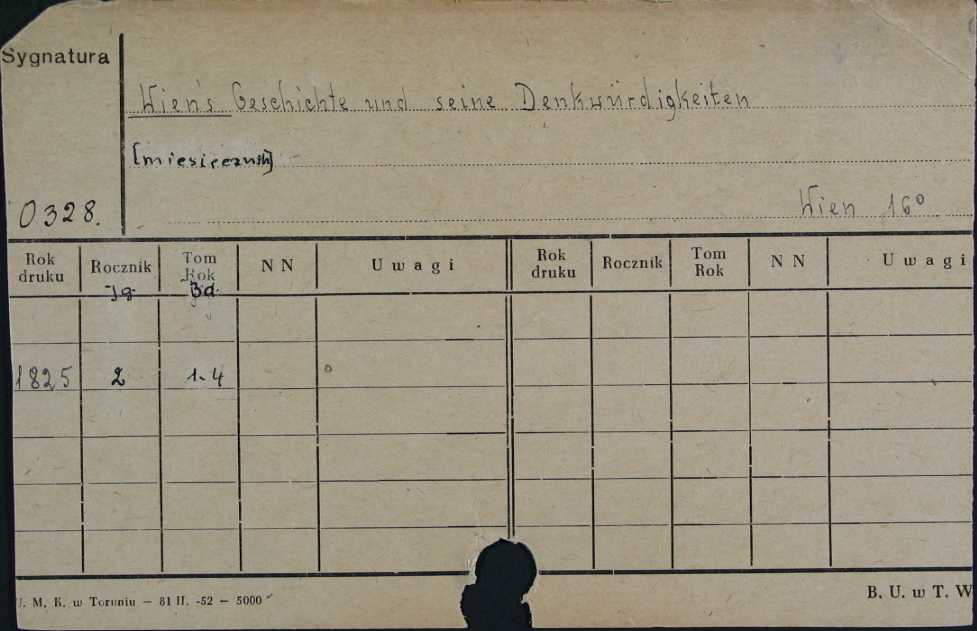 Sygnatura
Wien's Geschichte und seine Denkwürdigkeiten
[miesięcznik]
0328.
Wien 16°
Rok druku Rocznik Tom Rok N N Uwagi Rok druku Rocznik Tom Rok N N Uwagi
Jg. Bd.
1825 2 1-4
U. M. K. w Toruniu — 81 II. -52 — 5000
B. U. w T. W